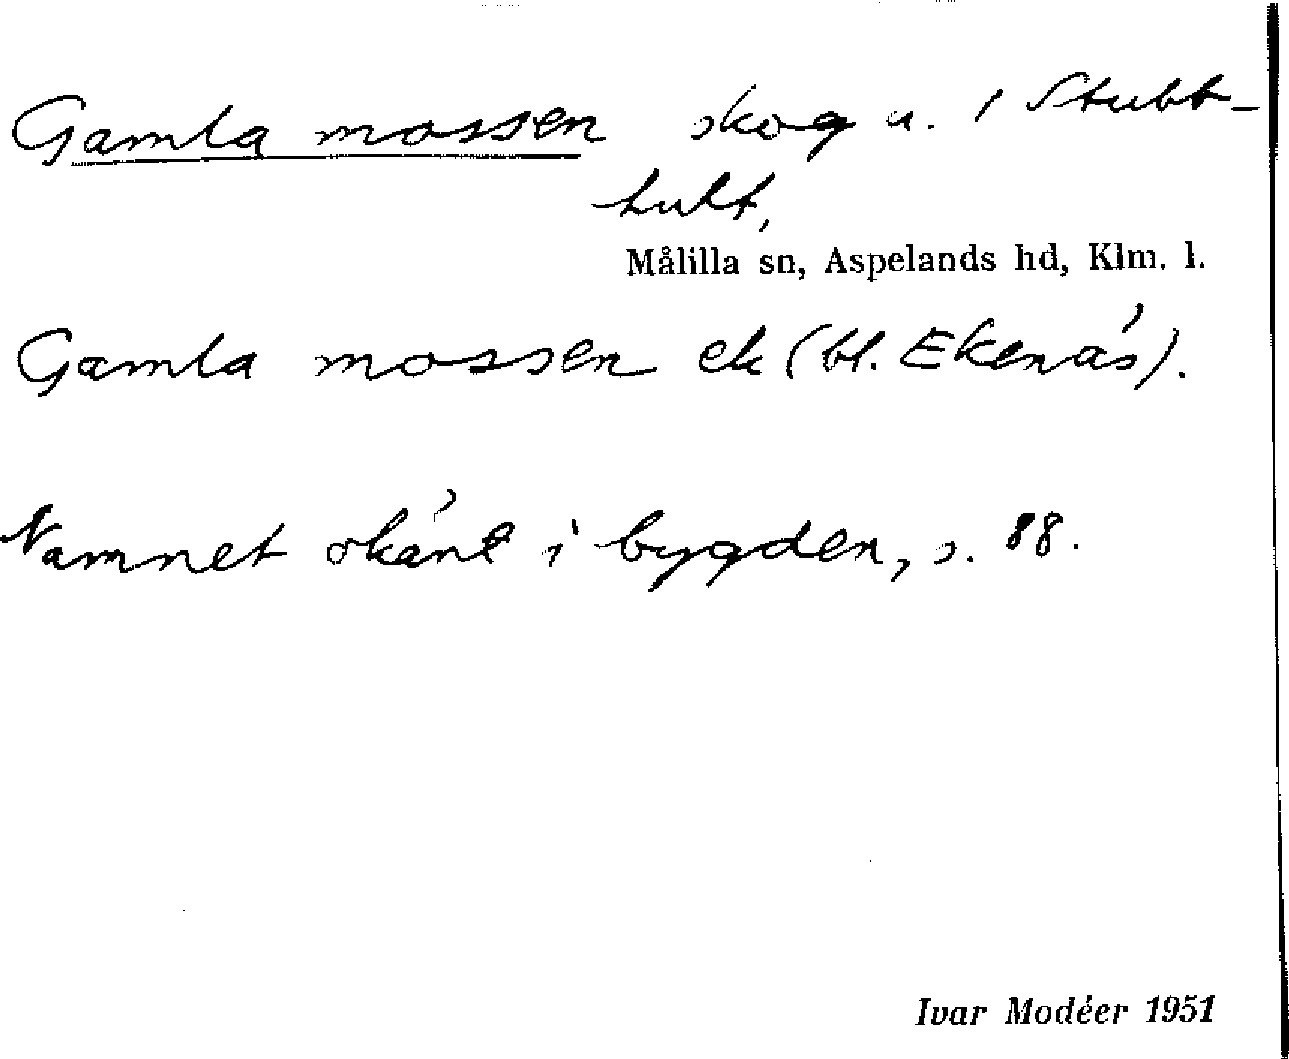 Gamla mossen skog u. 1 Stubb-
hult,
Målilla sn, Aspelands hd, Klm. l.
Gamla mossen ek (bl. Ekenäs).
Namnet okänt i bygden, s. 88.
Ivar Modéer 1951